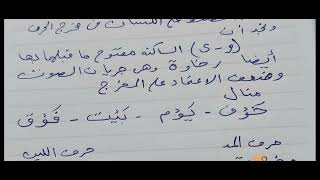 على اللسان فى مخرج الحرف
ونجد أن
(و - ى) الساكنه مفتوح ما قبلهما بها
أيضا رخاوة وهى جريان الصوت
وضعف الاعتماد على المخرج
مثال
خَوْف - يَوْم - بَيْت - فَوْق
حرف المد
حرف اللين